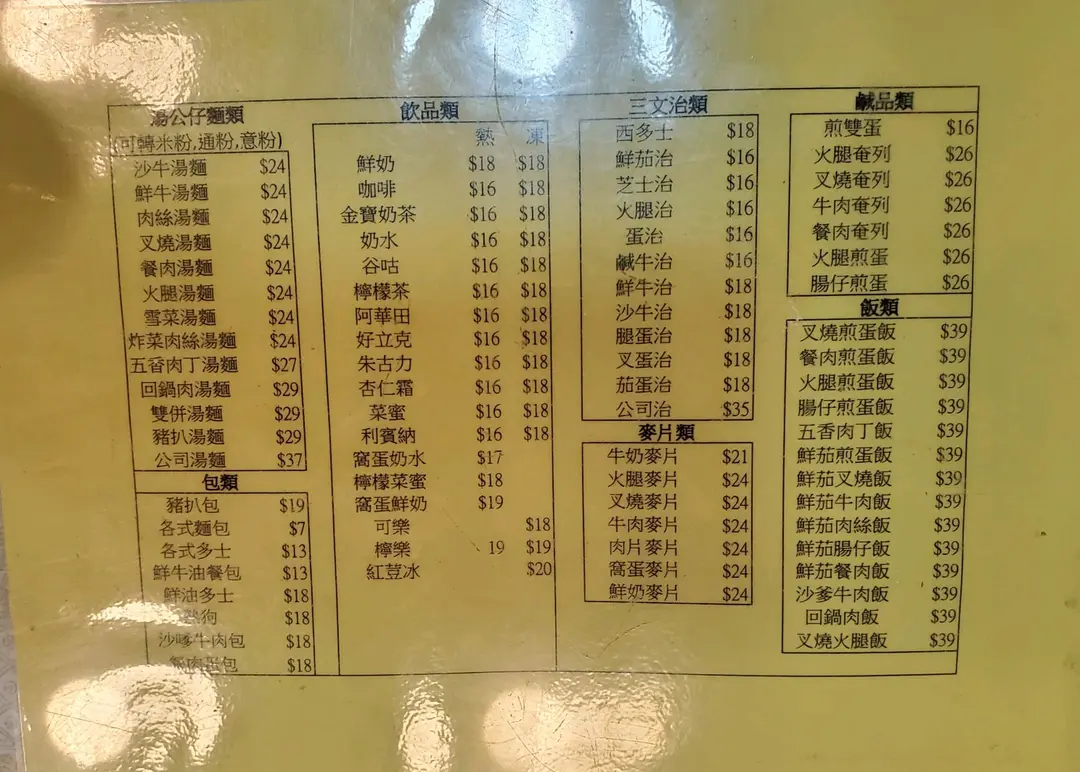 湯公仔麵類
(可轉米粉,通粉,意粉)
沙牛湯麵 $24
鮮牛湯麵 $24
肉絲湯麵 $24
叉燒湯麵 $24
餐肉湯麵 $24
火腿湯麵 $24
雪菜湯麵 $24
炸菜肉絲湯麵 $24
五香肉丁湯麵 $27
回鍋肉湯麵 $29
雙併湯麵 $29
豬扒湯麵 $29
公司湯麵 $37
包類
豬扒包 $19
各式麵包 $7
各式多士 $13
鮮牛油餐包 $13
鮮油多士 $18
狗 $18
沙嗲牛肉包 $18
肉蛋包 $18
飲品類
熱 凍
鮮奶 $18 $18
咖啡 $16 $18
金寶奶茶 $16 $18
奶水 $16 $18
谷咕 $16 $18
檸檬茶 $16 $18
阿華田 $16 $18
好立克 $16 $18
朱古力 $16 $18
杏仁霜 $16 $18
菜蜜 $16 $18
利賓納 $16 $18
窩蛋奶水 $17
檸檬菜蜜 $18
窩蛋鮮奶 $19
可樂 $18
檸樂 19 $19
紅荳冰 $20
三文治類
西多士 $18
鮮茄治 $16
芝士治 $16
火腿治 $16
蛋治 $16
鹹牛治 $16
鮮牛治 $18
沙牛治 $18
腿蛋治 $18
叉蛋治 $18
茄蛋治 $18
公司治 $35
麥片類
牛奶麥片 $21
火腿麥片 $24
叉燒麥片 $24
牛肉麥片 $24
肉片麥片 $24
窩蛋麥片 $24
鮮奶麥片 $24
鹹品類
煎雙蛋 $16
火腿奄列 $26
叉燒奄列 $26
牛肉奄列 $26
餐肉奄列 $26
火腿煎蛋 $26
腸仔煎蛋 $26
飯類
叉燒煎蛋飯 $39
餐肉煎蛋飯 $39
火腿煎蛋飯 $39
腸仔煎蛋飯 $39
五香肉丁飯 $39
鮮茄煎蛋飯 $39
鮮茄叉燒飯 $39
鮮茄牛肉飯 $39
鮮茄肉絲飯 $39
鮮茄腸仔飯 $39
鮮茄餐肉飯 $39
沙爹牛肉飯 $39
回鍋肉飯 $39
叉燒火腿飯 $39